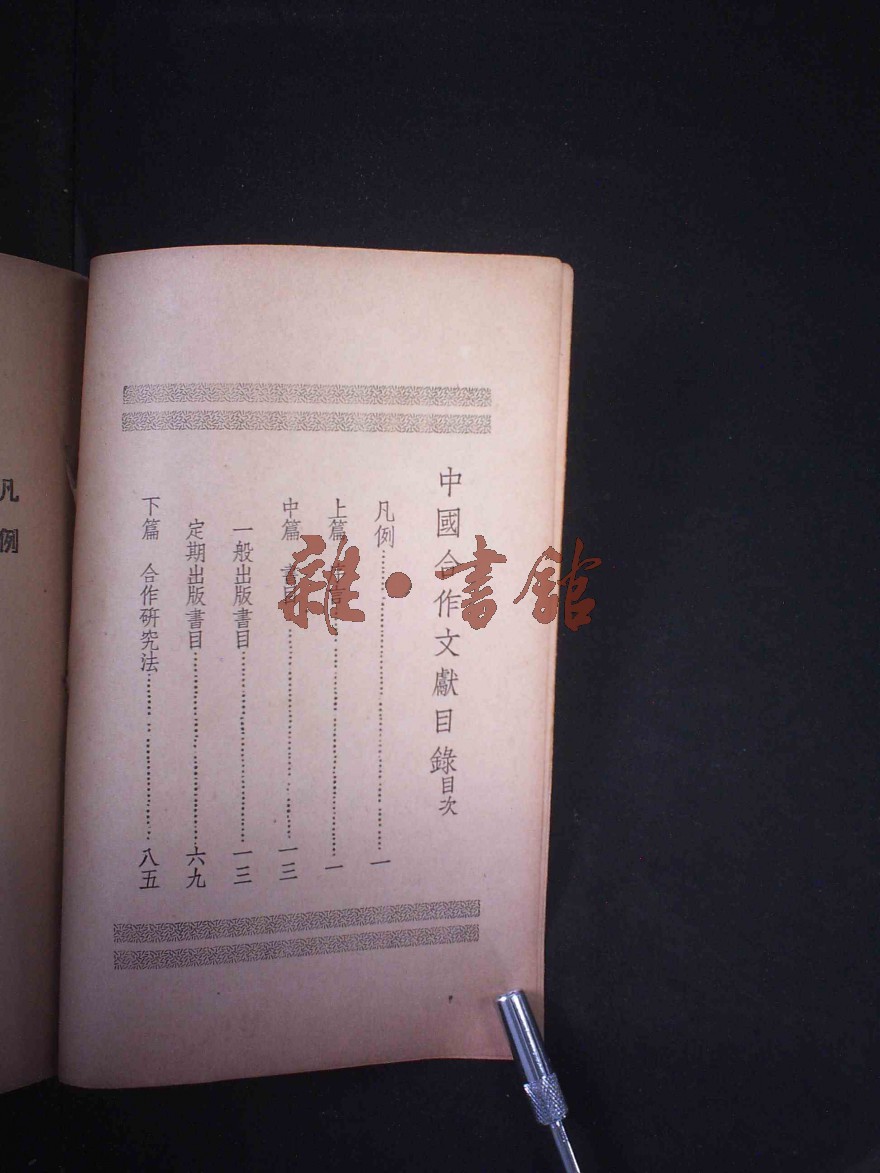 中國合作文獻目錄目次
凡例 一
上篇 序言 一
中篇 書目 一三
一般出版書目 一三
定期出版書目 六九
下篇 合作研究法 八五
凡例
雜·書館